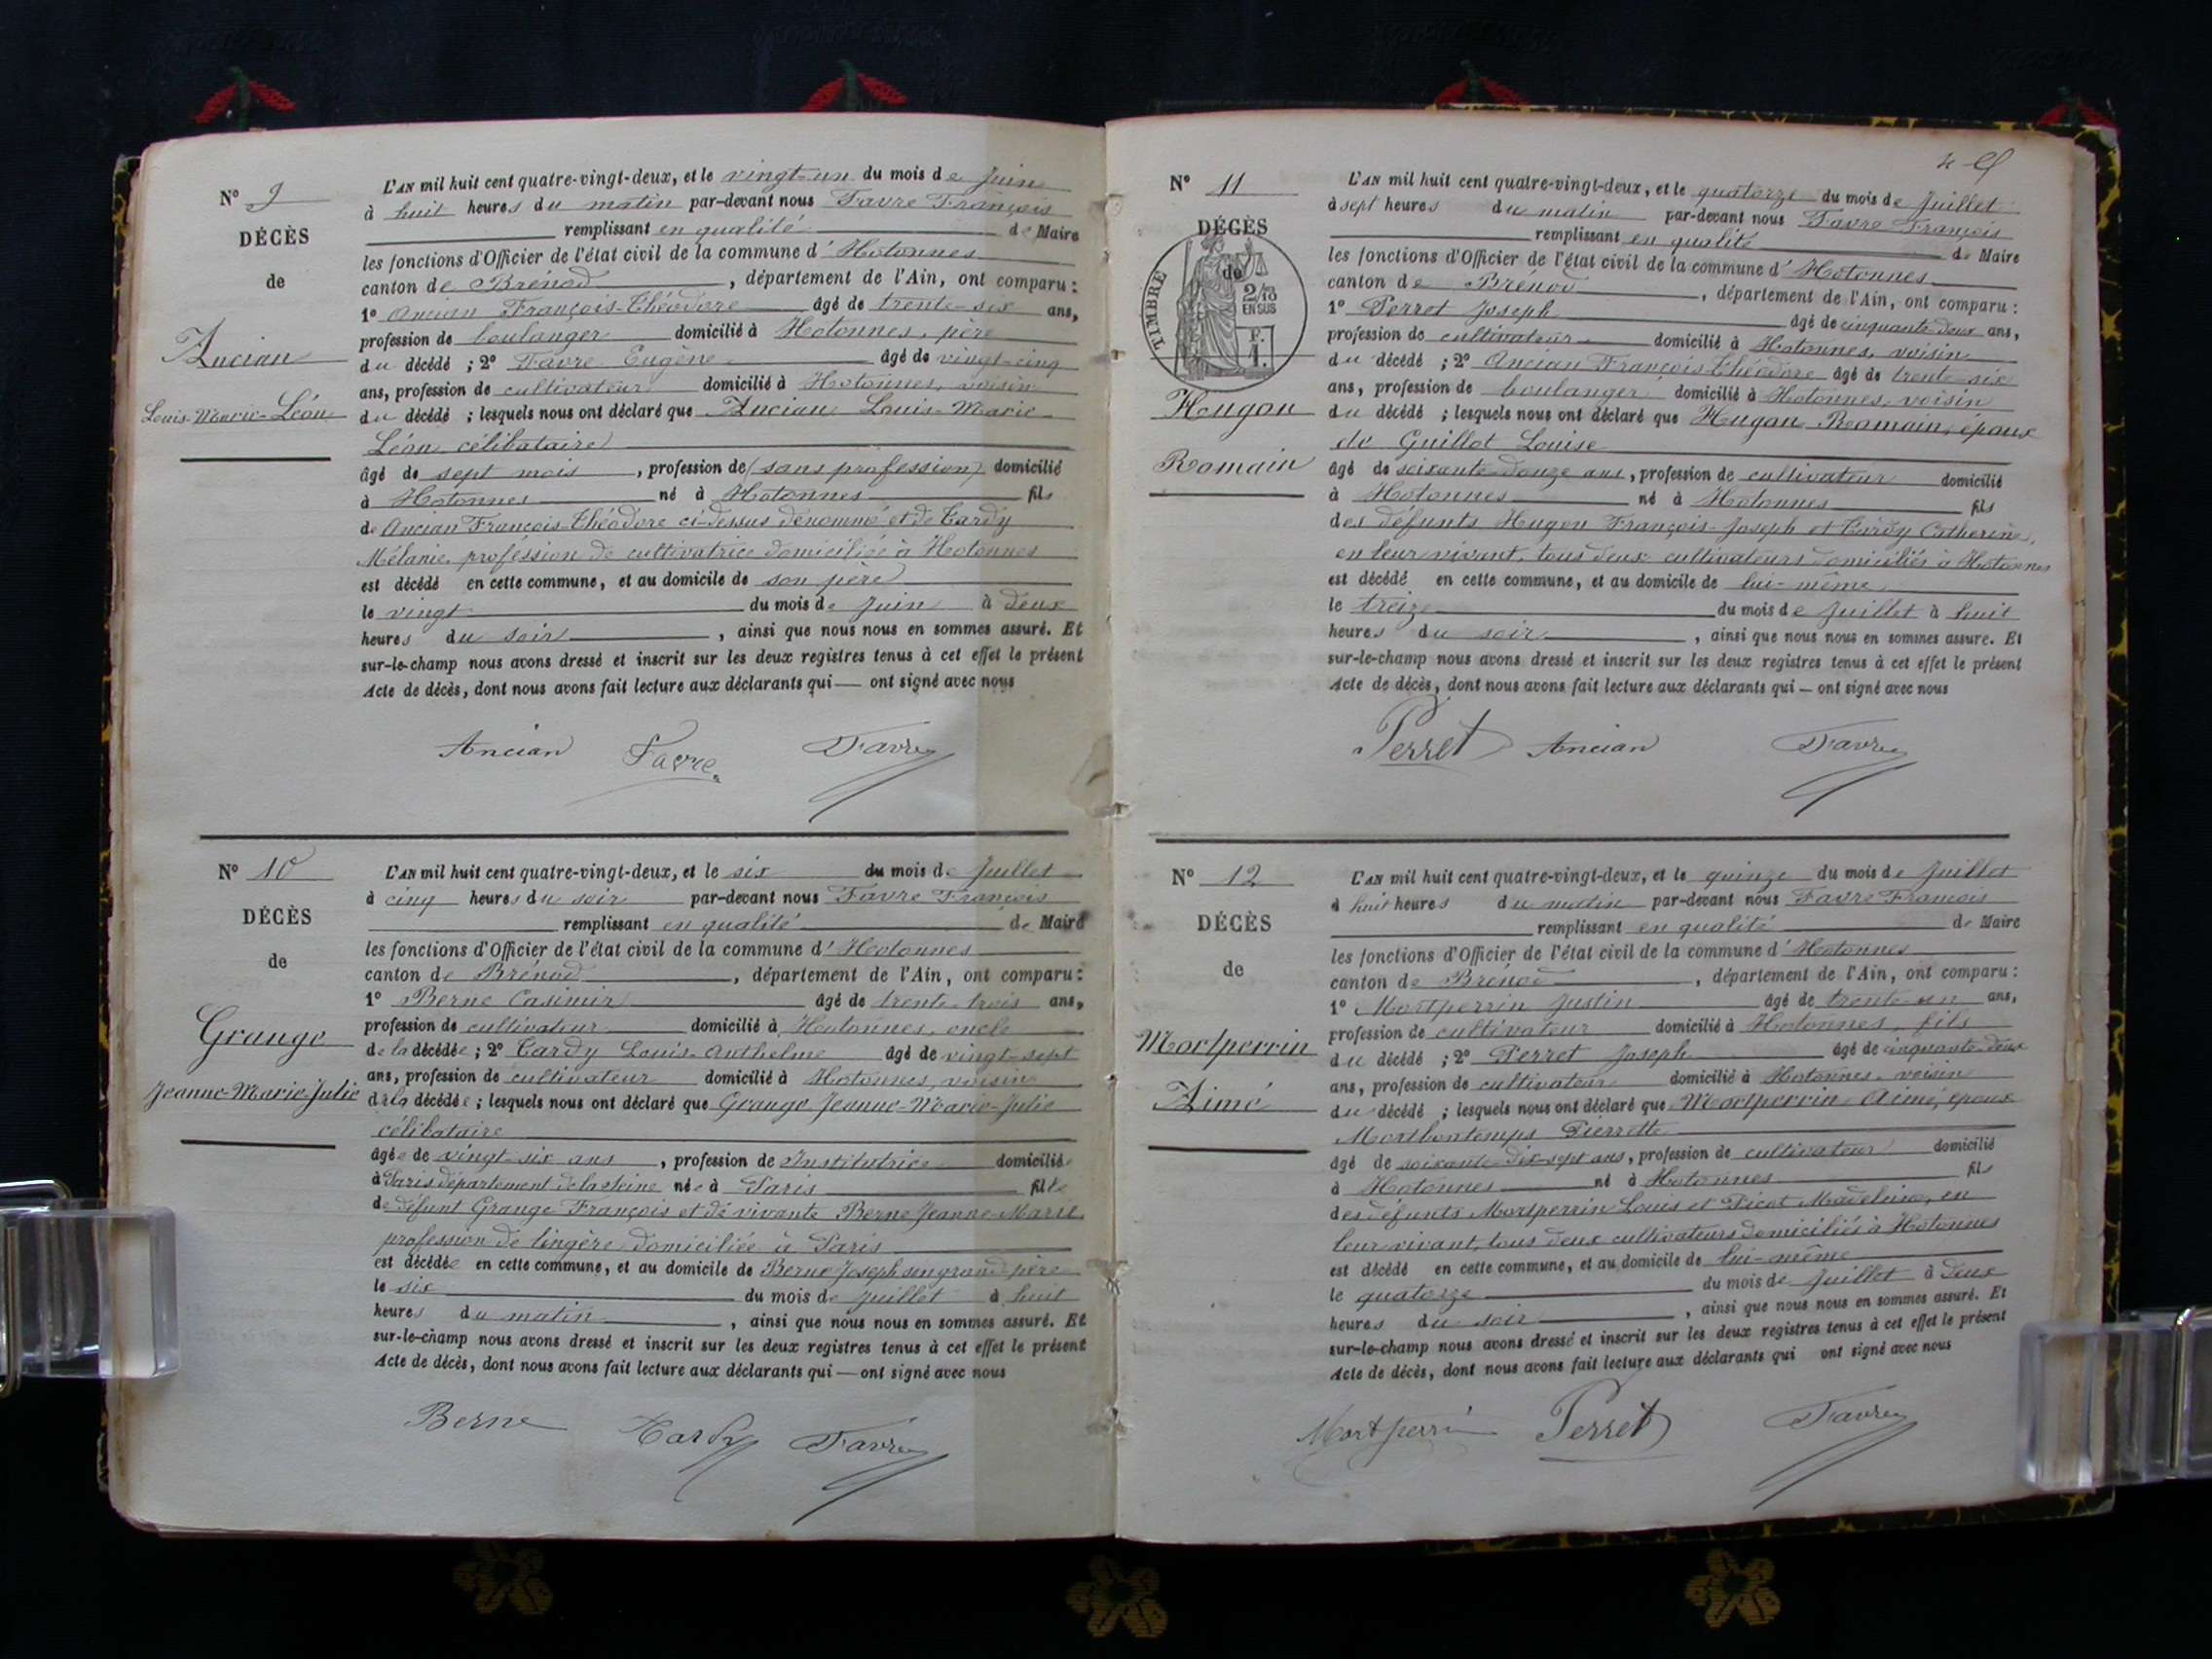 N° 9
DÉCÈS
de
Ancian
Louis-Marie-Léon
L'AN mil huit cent quatre-vingt-deux, et le vingt-un du mois de Juin
à huit heures du matin par-devant nous Favre François
remplissant en qualité de Maire
les fonctions d'Officier de l'état civil de la commune d'Hotonnes
canton de Brénod, département de l'Ain, ont comparu :
1° Ancian François-Théodore âgé de trente-six ans,
profession de boulanger domicilié à Hotonnes, père
du décédé ; 2° Favre Eugène âgé de vingt-cinq
ans, profession de cultivateur domicilié à Hotonnes, voisin
du décédé ; lesquels nous ont déclaré que Ancian Louis-Marie
Léon, célibataire
âgé de sept mois, profession de (sans profession) domicilié
à Hotonnes né à Hotonnes fils
de Ancian François-Théodore ci-dessus dénommé et de Tardy
Mélanie, profession de cultivatrice domiciliée à Hotonnes
est décédé en cette commune, et au domicile de son père
le vingt du mois de Juin à deux
heures du soir, ainsi que nous nous en sommes assuré. Et
sur-le-champ nous avons dressé et inscrit sur les deux registres tenus à cet effet le présent
Acte de décès, dont nous avons fait lecture aux déclarants qui — ont signé avec nous
Ancian Favre Favre
N° 10
DÉCÈS
de
Grange
Jeanne-Marie-Julie
L'AN mil huit cent quatre-vingt-deux, et le six du mois de Juillet
à cinq heures du soir par-devant nous Favre François
remplissant en qualité de Maire
les fonctions d'Officier de l'état civil de la commune d'Hotonnes
canton de Brénod, département de l'Ain, ont comparu :
1° Berne Casimir âgé de trente-trois ans,
profession de cultivateur domicilié à Hotonnes, oncle
de la décédée ; 2° Tardy Louis-Anthelme âgé de vingt-sept
ans, profession de cultivateur domicilié à Hotonnes, voisin
de la décédée ; lesquels nous ont déclaré que Grange Jeanne-Marie-Julie
célibataire
âgée de vingt-six ans, profession de Institutrice domicilié
à Paris département de la Seine née à Paris fille
de défunt Grange François et de vivante Berne Jeanne-Marie
profession de lingère domiciliée à Paris
est décédée en cette commune, et au domicile de Berne Joseph son grand père
le six du mois de Juillet à huit
heures du matin, ainsi que nous nous en sommes assuré. Et
sur-le-champ nous avons dressé et inscrit sur les deux registres tenus à cet effet le présent
Acte de décès, dont nous avons fait lecture aux déclarants qui — ont signé avec nous
Berne Tardy Favre
N° 11
DÉCÈS
de
TIMBRE
2/10
EN SUS
F.
1.
Hugon
Romain
L'AN mil huit cent quatre-vingt-deux, et le quatorze du mois de Juillet
à sept heures du matin par-devant nous Favre François
remplissant en qualité de Maire
les fonctions d'Officier de l'état civil de la commune d'Hotonnes
canton de Brénod, département de l'Ain, ont comparu :
1° Perret Joseph âgé de cinquante-deux ans,
profession de cultivateur domicilié à Hotonnes, voisin
du décédé ; 2° Ancian François-Théodore âgé de trente-six
ans, profession de boulanger domicilié à Hotonnes, voisin
du décédé ; lesquels nous ont déclaré que Hugon Romain, époux
de Guillot Louise
âgé de soixante-douze ans, profession de cultivateur domicilié
à Hotonnes né à Hotonnes fils
des défunts Hugon François-Joseph et Tardy Catherine,
en leur vivant, tous deux cultivateurs domiciliés à Hotonnes
est décédé en cette commune, et au domicile de lui-même
le treize du mois de Juillet à huit
heures du soir, ainsi que nous nous en sommes assuré. Et
sur-le-champ nous avons dressé et inscrit sur les deux registres tenus à cet effet le présent
Acte de décès, dont nous avons fait lecture aux déclarants qui — ont signé avec nous
Perret Ancian Favre
N° 12
DÉCÈS
de
Montperrin
Aimé
L'AN mil huit cent quatre-vingt-deux, et le quinze du mois de Juillet
à huit heures du matin par-devant nous Favre François
remplissant en qualité de Maire
les fonctions d'Officier de l'état civil de la commune d'Hotonnes
canton de Brénod, département de l'Ain, ont comparu :
1° Montperrin Justin âgé de trente-un ans,
profession de cultivateur domicilié à Hotonnes, fils
du décédé ; 2° Perret Joseph âgé de cinquante-deux
ans, profession de cultivateur domicilié à Hotonnes, voisin
du décédé ; lesquels nous ont déclaré que Montperrin Aimé, époux
Montbontemps Pierrette
âgé de soixante-dix-sept ans, profession de cultivateur domicilié
à Hotonnes né à Hotonnes fils
des défunts Montperrin Louis et Picot Madeleine, en
leur vivant, tous deux cultivateurs domiciliés à Hotonnes
est décédé en cette commune, et au domicile de lui-même
le quatorze du mois de Juillet à deux
heures du soir, ainsi que nous nous en sommes assuré. Et
sur-le-champ nous avons dressé et inscrit sur les deux registres tenus à cet effet le présent
Acte de décès, dont nous avons fait lecture aux déclarants qui ont signé avec nous
Montperrin Perret Favre